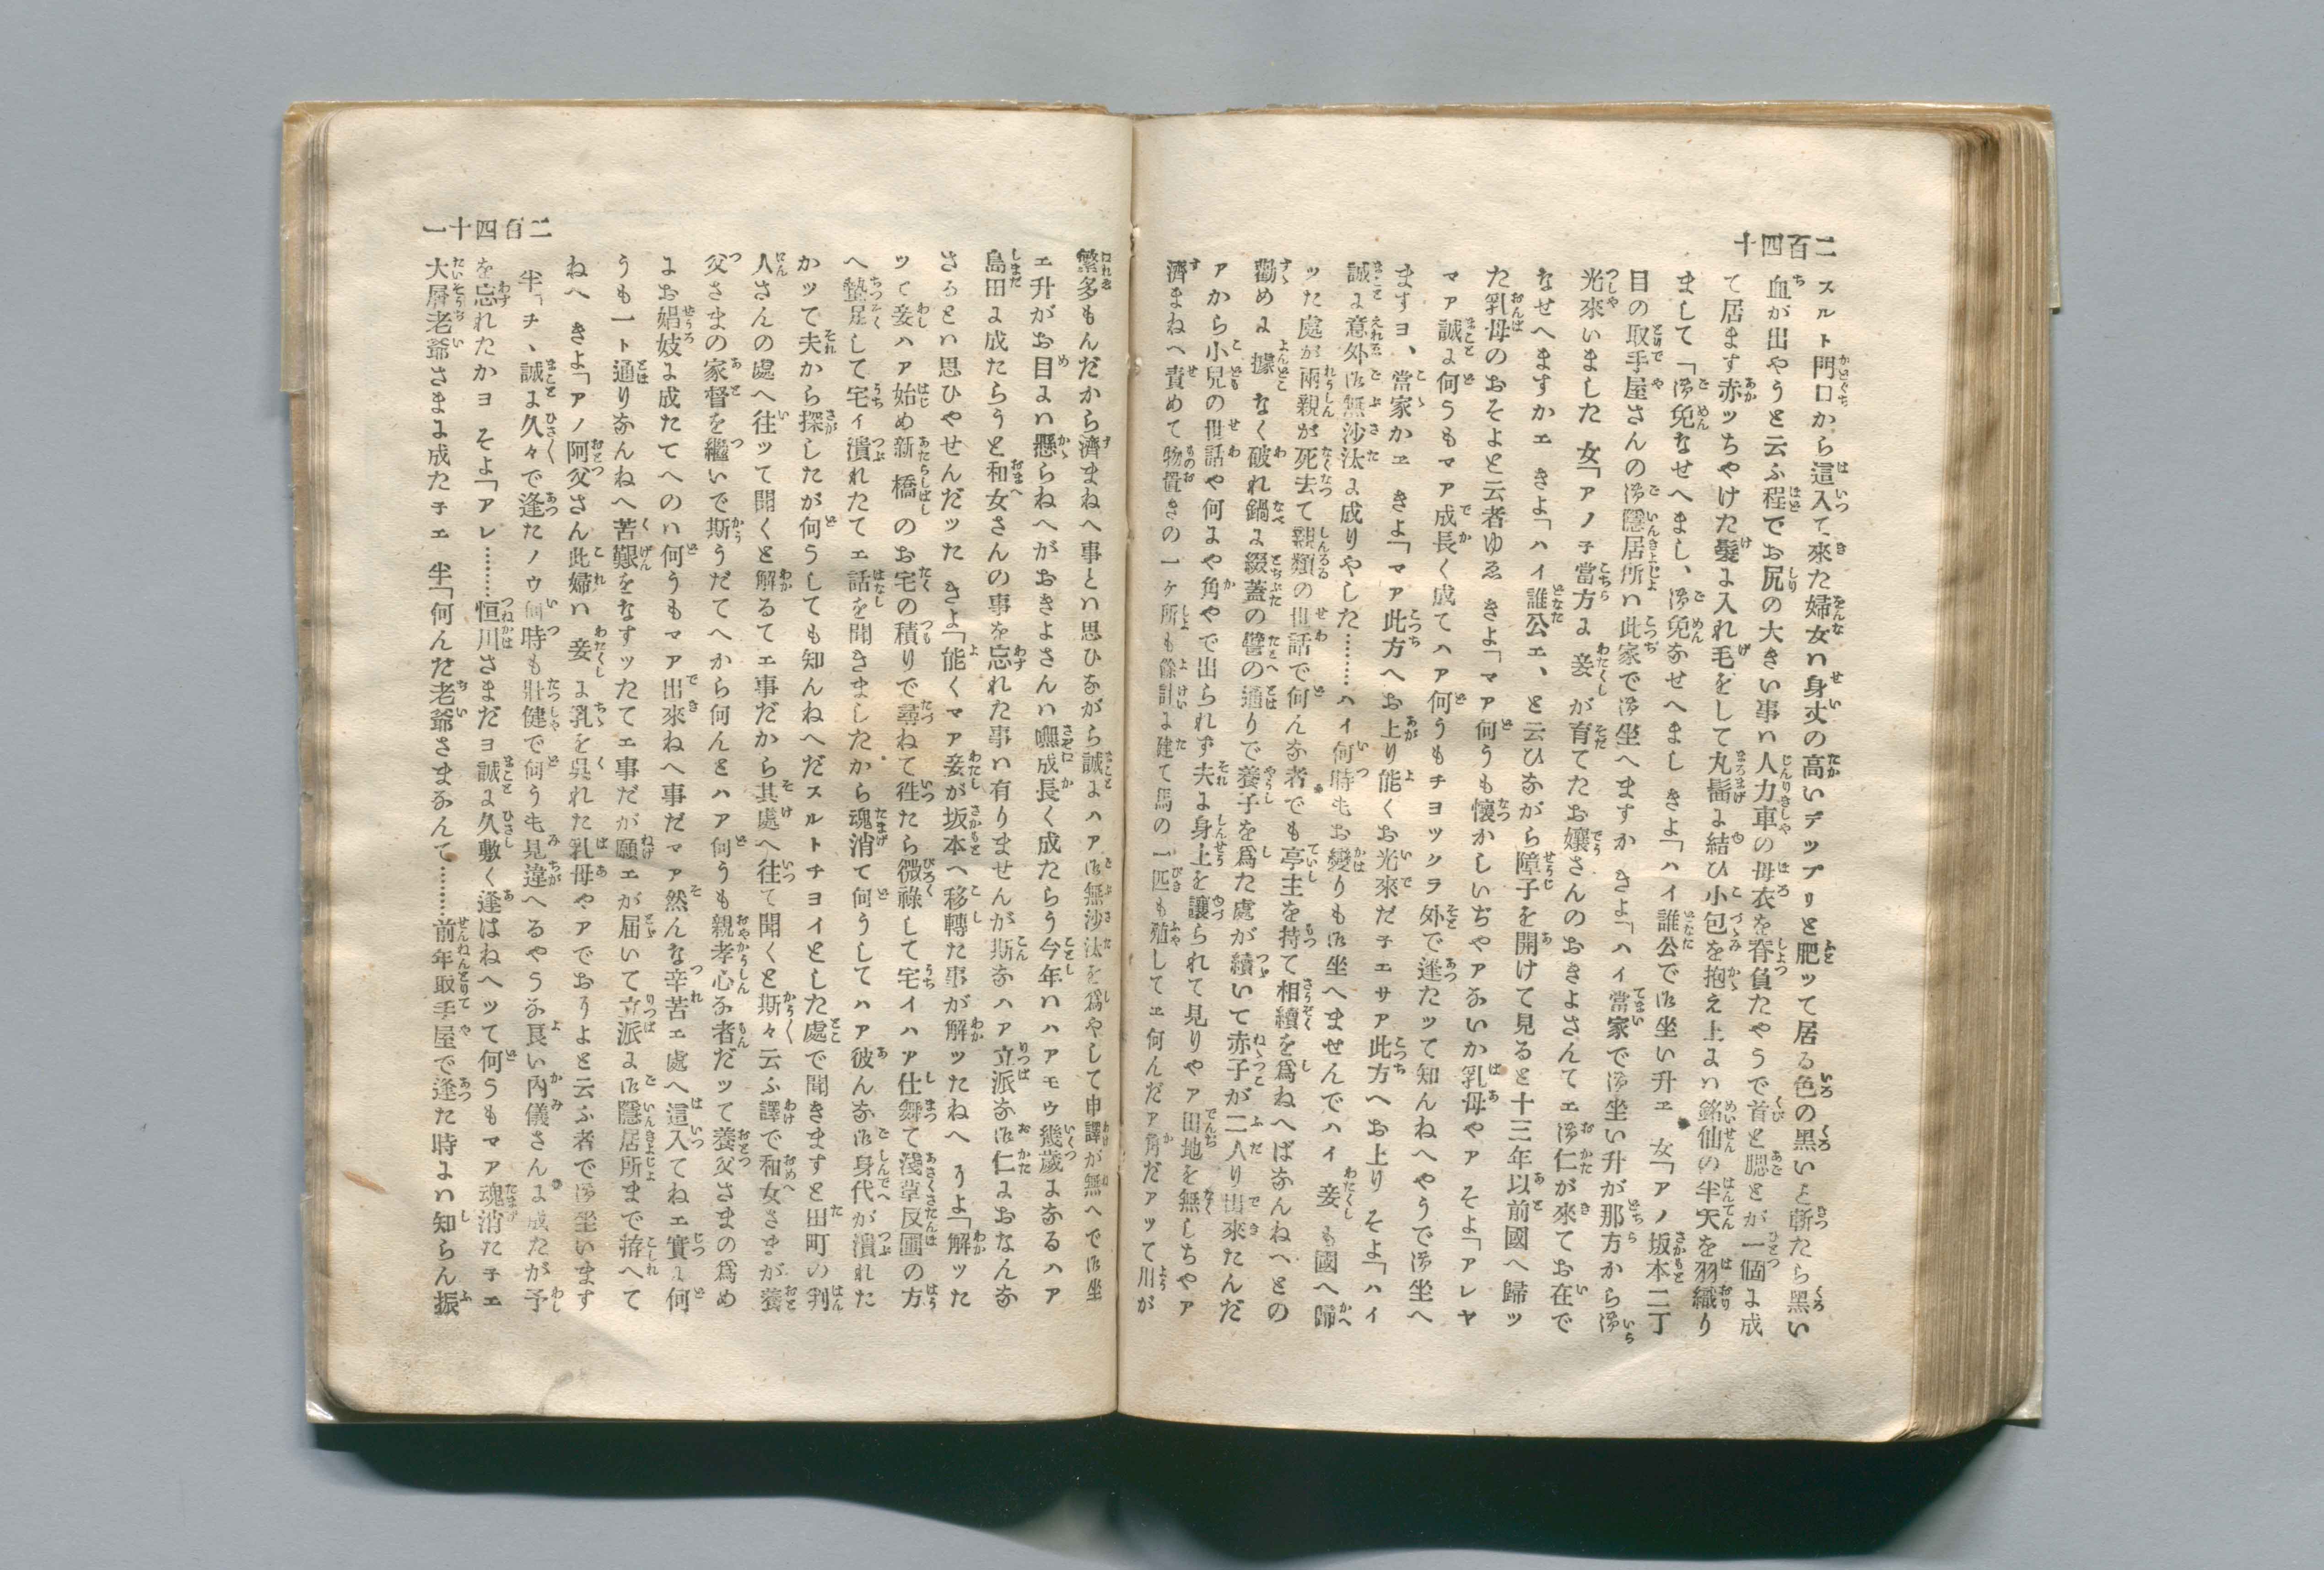 二百四十
スルト門口から這入て來た婦女ハ身丈の高いデップリと肥ッて居る色の黒いと斬たら黒い
血が出やうと云ふ程でお尻の大きい事ハ人力車の母衣を脊負たやうで首と腮とが一個よ成
て居ます赤ッちやけた髮よ入れ毛をして丸髷よ結ひ小包を抱え上よハ銘仙の半天を羽織り
まして「御免なせへまし、御免なせへまし きよ「ハイ誰公で御坐い升ヱ 女「アノ坂本二丁
目の取手屋さんの御隱居所ハ此家で御坐へますか きよ「ハイ當家で御坐い升が那方から御
光來いました 女「アノ子當方よ妾が育てたお孃さんのおきよさんてエ御仁が來てお在で
なせへますかエ きよ「ハイ誰公エ、と云ひながら障子を開けて見ると十三年以前國へ歸ッ
た乳母のおそよと云者ゆゑ きよ「マア何うも懷かしいぢやアないか乳母やア そよ「アレヤ
マア誠よ何うもマア成長く成てハア何うもチヨックラ外で逢たッて知んねへやうで御坐へ
ますヨ、當家かエ きよ「マア此方へお上り能くお光來だ子エサア此方へお上り そよ「ハイ
誠よ意外御無沙汰よ成りやした………ハイ何時もお變りも御坐へませんでハイ妾も國へ歸
ッた處が兩親が死去て親類の世話で何んな者でも亭主を持て相續を爲ねへばなんねへとの
勸めよ據なく破れ鍋よ綴蓋の譬の通りで養子を爲た處が續いて赤子が二人り出來たんだ
アから小兒の世話や何よや角やで出られず夫よ身上を讓られて見りやア田地を無しちやア
濟まねへ責めて物置きの一ヶ所も餘計よ建て馬の一匹も殖してエ何んだア角だアッて川が
二百四十一
繁多もんだから濟まねへ事とハ思ひながら誠よハア御無沙汰を爲やして申譯が無へで御坐
エ升がお目よハ懸らねへがおきよさんハ嘸成長く成たらう今年ハハアモウ幾歳よなるハア
島田よ成たらうと和女さんの事を忘れた事ハ有りませんが斯なハア立派な御仁よおなんな
さるとハ思ひやせんだッた きよ「能くマア妾が坂本へ移轉た事が解ッたねへ そよ「解ッた
ッて妾ハア始め新橋のお宅の積りで尋ねて徃たら微祿して宅イハア仕舞て淺草反圃の方
へ蟄足して宅ィ潰れたてエ話を聞きましたから魂消て何うしてハア彼んな御身代が潰れた
かッて夫から探したが何うしても知んねへだスルトチヨイとした處で聞きますと田町の判
人さんの處へ往ッて聞くと解るてエ事だから其處へ往て聞くと斯々云ふ譯で和女さまが養
父さまの家督を繼いで斯うだてへから何んとハア何うも親孝心な者だッて養父さまの爲め
よお娼妓よ成たてへのハ何うもマア出來ねへ事だマア然んな辛苦エ處へ這入てねエ實よ何
うも一ト通りなんねへ苦艱をなすッたてエ事だが願エが届いて立派よ御隱居所まで拵へて
ねへ きよ「アノ阿父さん此婦ハ妾よ乳を呉れた乳母やアでおそよと云ふ者で御坐います
半「チ、誠よ久々で逢たノウ何時も壯健で何うも見違へるやうな良い内儀さんよ成たが予
を忘れたかヨ そよ「アレ………恒川さまだヨ誠よ久敷く逢はねへッて何うもマア魂消た子エ
大層老爺さまよ成た子エ 半「何んだ老爺さまなんて………前年取手屋で逢た時よハ知らん振